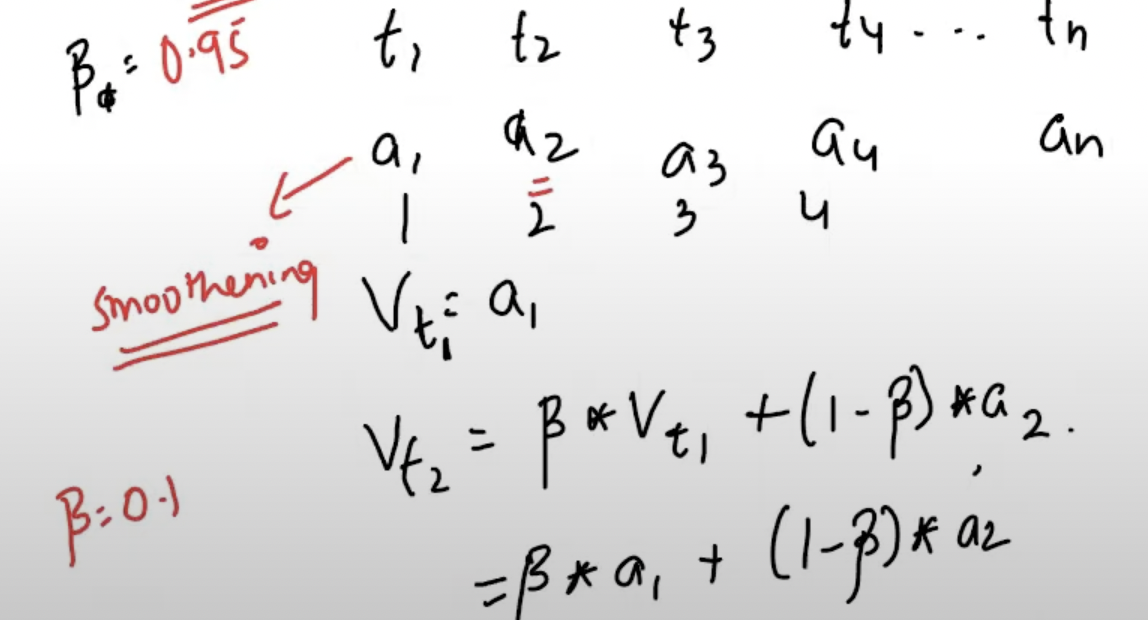 β = 0.95 t1 t2 t3 t4 ... tn
a1 a2 a3 a4 an
1 2 3 4
smoothening
Vt1 = a1
Vt2 = β * Vt1 + (1 - β) * a2.
β = 0.1
= β * a1 + (1 - β) * a2